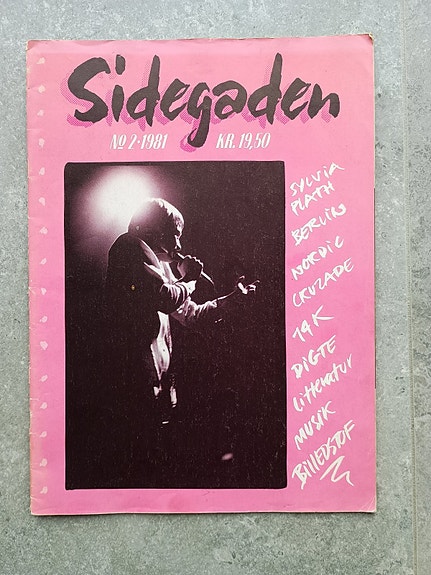 Sidegaden
No 2·1981 KR. 19,50
SYLVIA
PLATH
BERLIN
NORDIC
CRUZADE
14K
DIGTE
litteratur
MUSIK
BILLEDSTOF